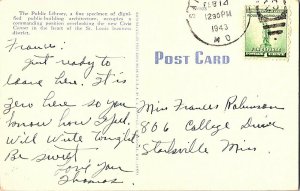 The Public Library, a fine specimen of digni-
fied public-building architecture, occupies a
commanding position overlooking the new Civic
Center in the heart of the St. Louis business
district.
Frances:
Just ready to
leave here. It is
zero here so you
know how I feel.
Will write tonight
Be sweet
Love your
Thomas
POST CARD
Miss Frances Robinson
806 College Drive
Starkville Miss.
1230PM
1943
MO